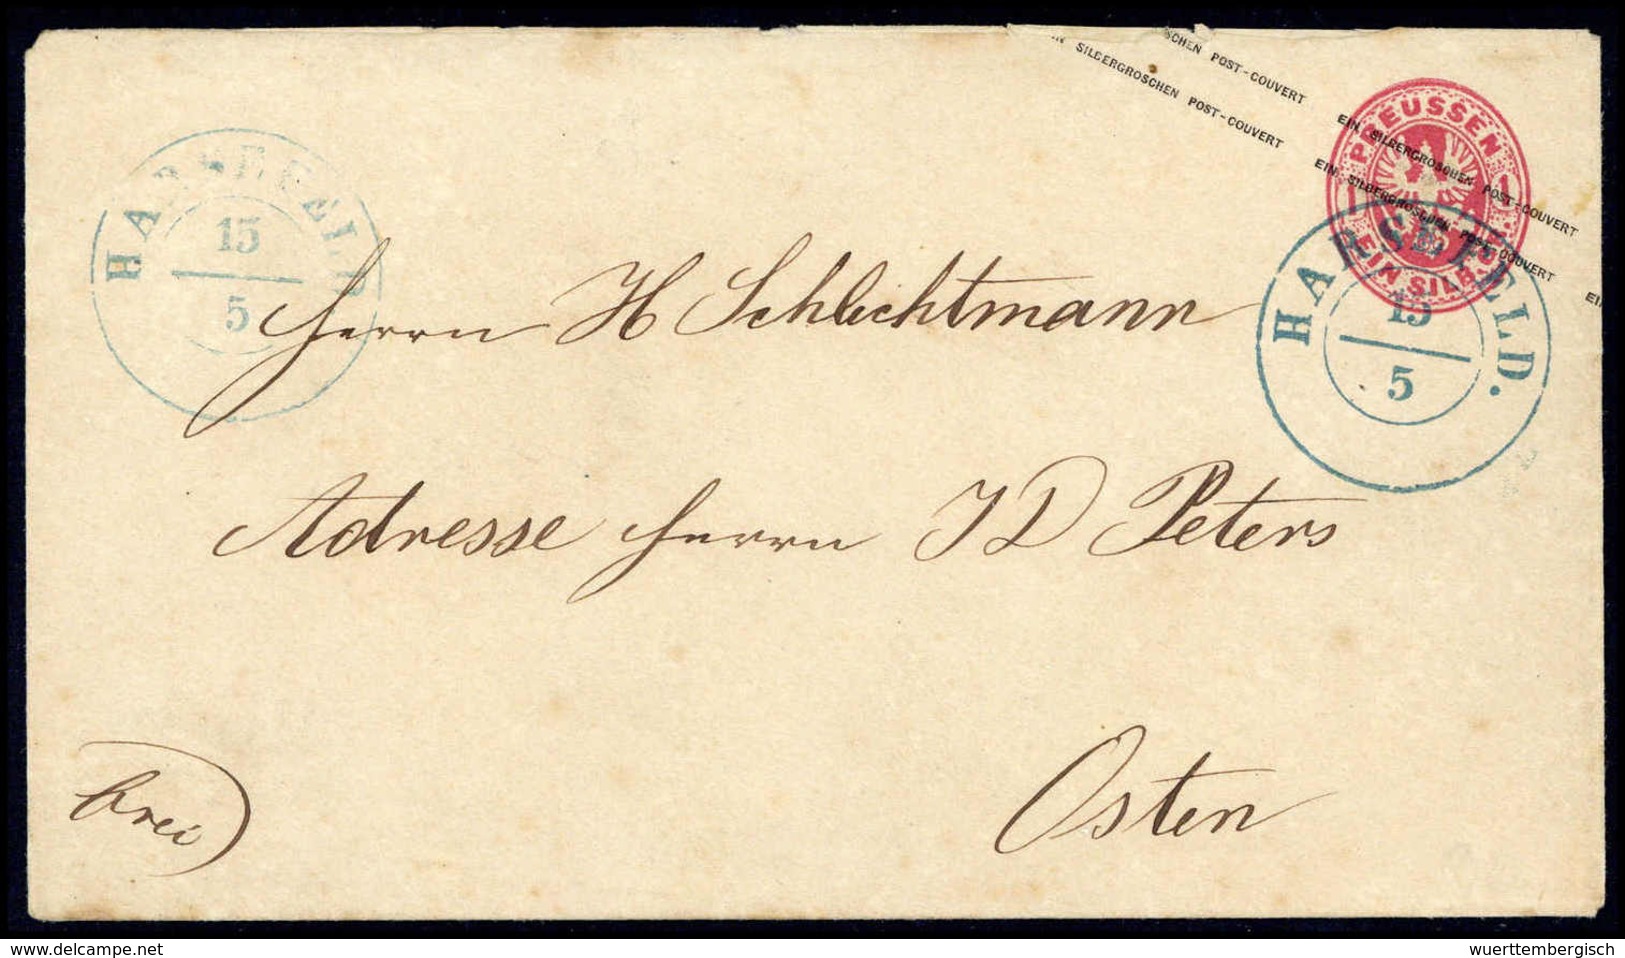 SCHEN POST-COUVERT EIN SILBERGROSCHEN POST-COUVERT
IN SILBERGROSCHEN POST-COUVERT EIN SILBERGROSCHEN POST-COUVERT EI
PREUSSEN
1 1
EIN SILB.
HARSEFELD
15
5
HARSEFELD.
15
5
Herrn H Schlichtmann
Adresse Herrn J D Peters
Osten
frei
delcampe.net
wuerttembergisch